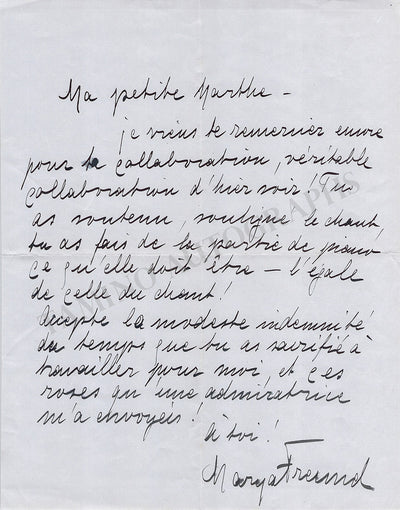 Ma petite Marthe –
je viens te remercier encore
pour ta collaboration, véritable
collaboration d'hier soir! Tu
as soutenu, souligné le chant,
tu as fais de la partie de piano
ce qu'elle doit être – l'égale
de celle du chant!
Accepte la modeste indemnité
du temps que tu as sacrifié à
travailler pour moi, et ces
roses qu'une admiratrice
m'a envoyeis!
à toi!
Marya Freund
TAMINO AUTOGRAPHS